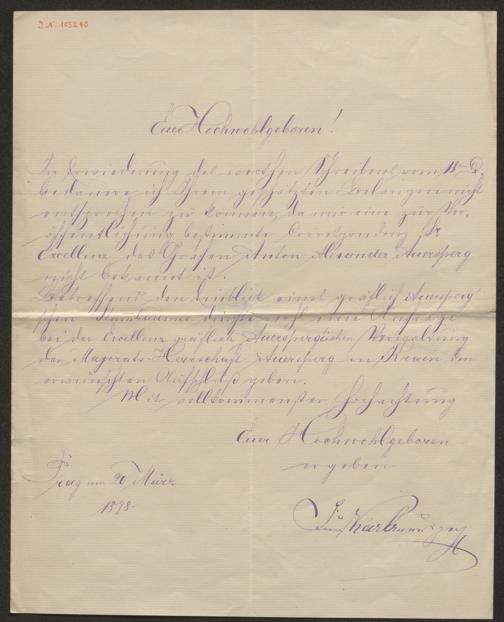 J.N. 103240
Euer Hochwohlgeboren!
In Erwiederung des werthen Schreibens vom 18. d.
bedauere ich Ihrem geschätzten Verlangen nicht
entsprechen zu können, da mir eine zur Ver-
öffentlichung bestimmte Correspondenz Sr
Excellenz des Grafen Anton Alexander Auersperg
nicht bekannt ist.
Betreffend den Einblick eines gräflich Auersperg'
schen Stammbaumes dürfte wohl eine Anfrage
bei der Excellenz gräflich Auersperg'schen Verwaltung
der Majorats-Herrschaft Auersperg in Krain den
erwünschten Aufschluß geben.
Mit vollkommenster Hochachtung
Euer Hochwohlgeboren
ergeben
Prag am 20 März
1898.
Karl